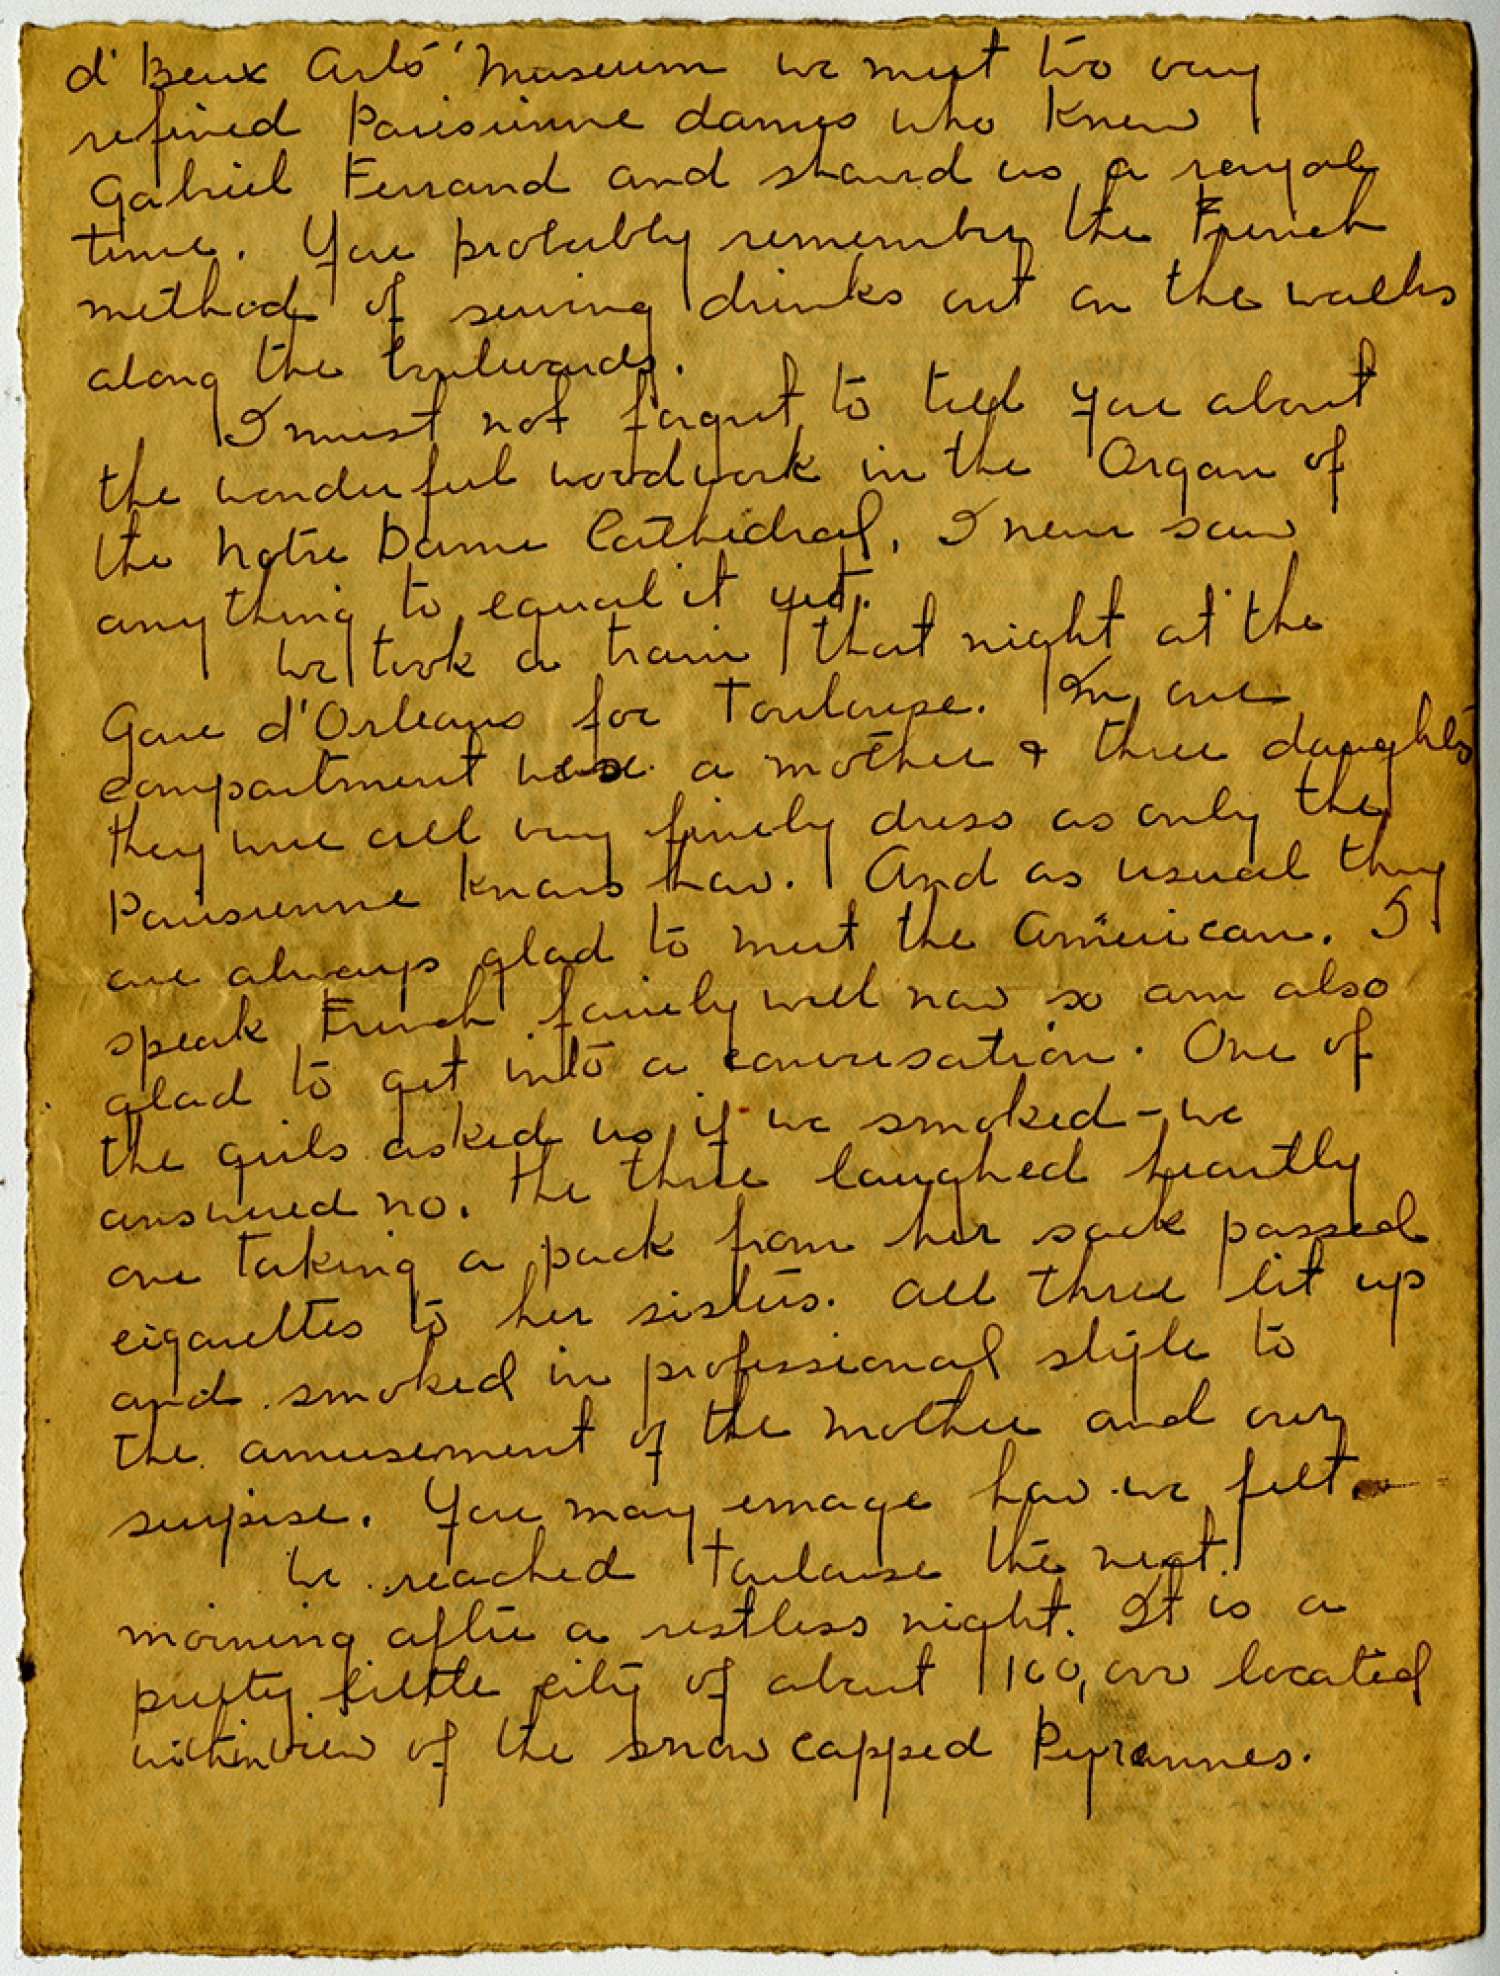 d' Beux Arts' Museum we meet two very
refined Parisienne dames who knew
Gabriel Ferrand and showed us a royal
time. You probably remember the French
method of serving drinks out on the walks
along the bulevards.
I must not forget to tell you about
the wonderful woodwork in the Organ of
the Notre Dame Cathedral, I never saw
anything to equal it yet.
We took a train that night at the
Gare d'Orleans for Toulouse. In our
compartment were a mother & three daughters
they were all very finely dress as only the
Parisienne knows how. And as usual they
are always glad to meet the American. I
speak French fairely well now so am also
glad to get into a conversation. One of
the girls asked us if we smoked - we
answered no. The three laughed heartly
one taking a pack from her sack passed
cigarettes to her sisters. All three lit up
and smoked in professional style to
the amusement of the mother and our
surpise. You may emage how we felt.
We reached Toulouse the next
morning after a restless night. It is a
pretty little city of about 100,000 located
within view of the snow capped Pyrannes.